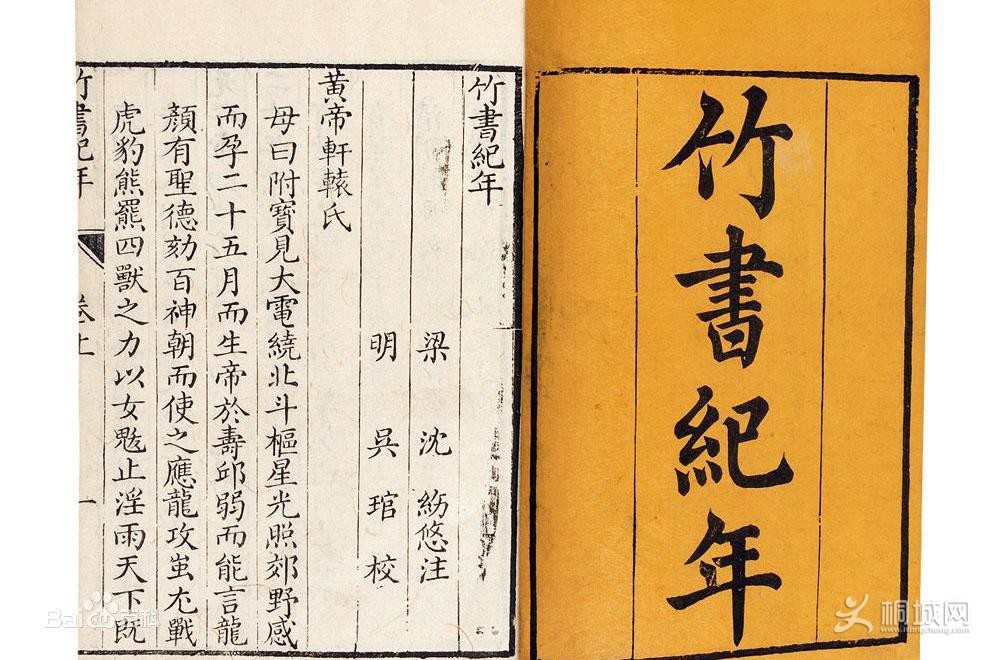 竹書紀年
竹書紀年
梁 沈 約悠注
明 吳 琯 校
黄帝軒轅氏
母曰附寶見大電繞北斗樞星光照郊野感
而孕二十五月而生帝於壽邱弱而能言龍
顏有聖德劾百神朝而使之應龍攻蚩尤戰
虎豹熊羆四獸之力以女魃止淫雨天下既
竹書紀年
卷上
一
Bai 百科
桐城网
www.tongcheng.com